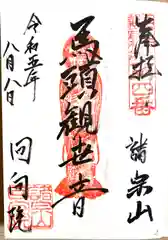 奉拝
諸宗山
馬頭観世音
令和五年
八月八日
回向院